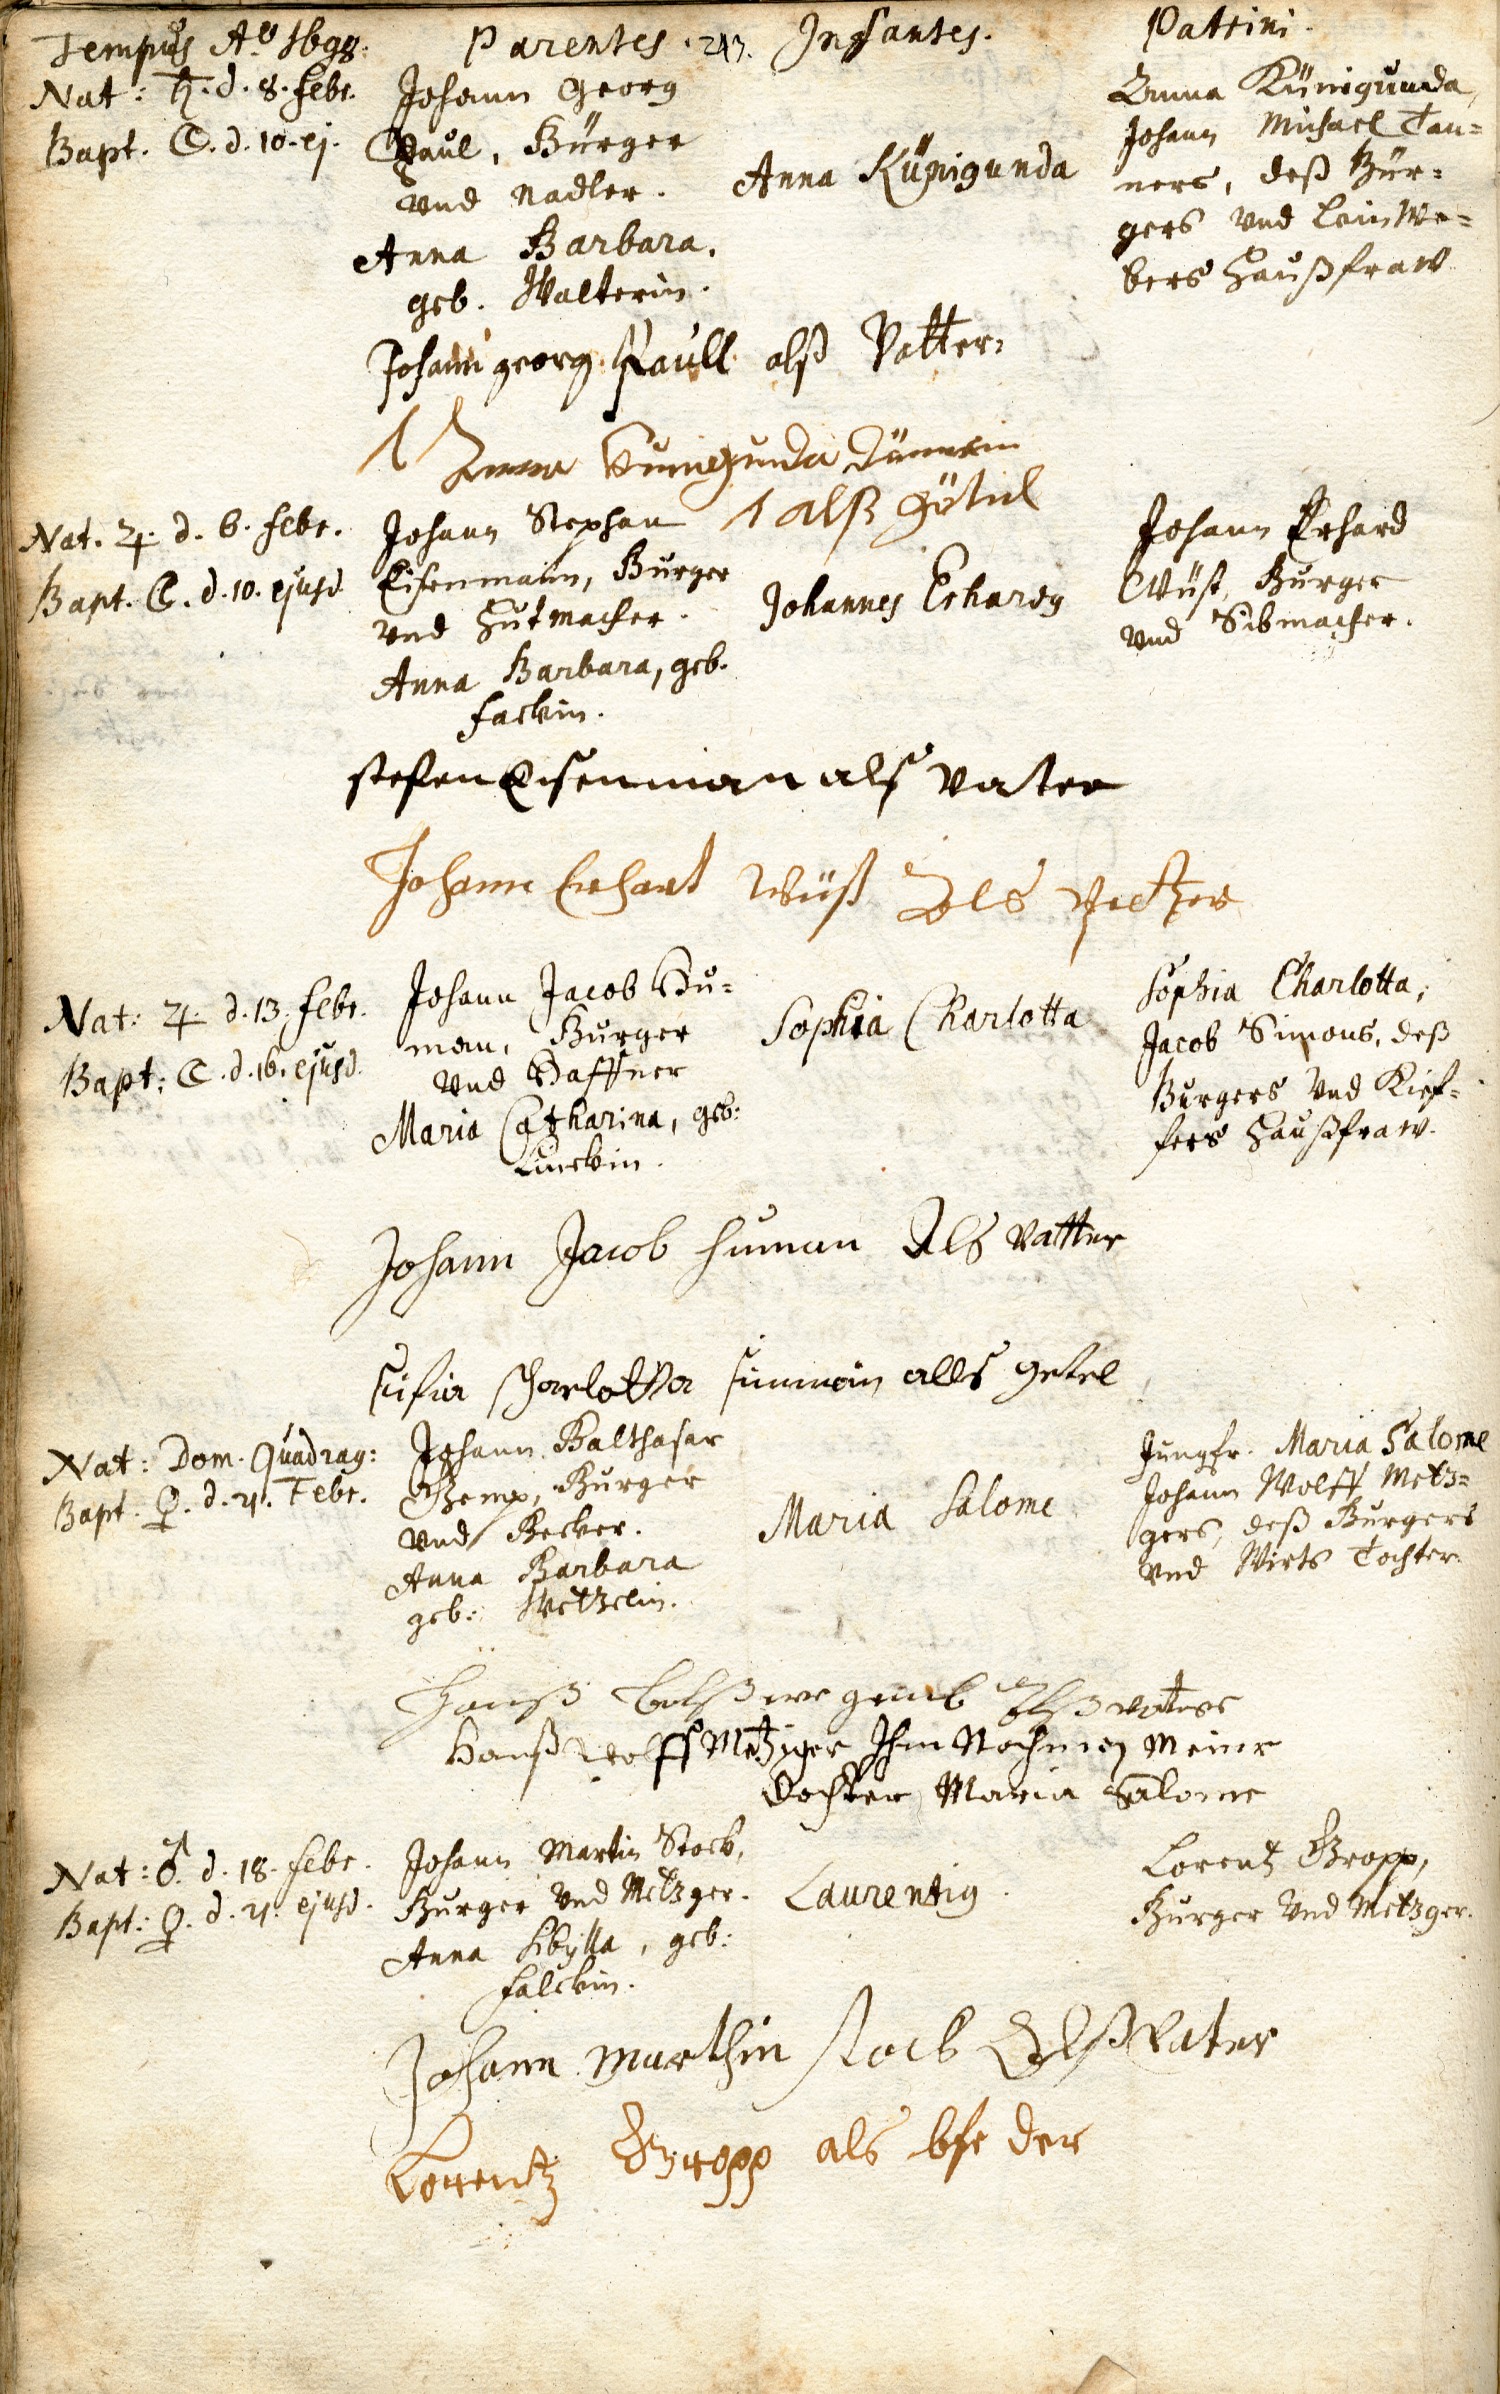 Tempus Aº 1698. Parentes. 243. Infantes. Pattrini.
Nat: ♄. d. 8. Febr.
Bapt. ☾. d. 10. ej.
Johann Georg
Paul, Bürger
vnd Nadler.
Anna Barbara,
geb. Walterin.
Anna Künigunda
Anna Künigunda,
Johann Michael Tan=
ners, deß Bür=
gers vnd leinwe=
bers Haußfraw
Johann georg Paull alß Vatter:
Anna Kunigunda Dännerin
alß götel
Nat. ♃. d. 6. Febr.
Bapt. ☾. d. 10. ejusd.
Johann Stephan
Eisenmann, Burger
vnd Hutmacher.
Anna Barbara, geb.
Fackin.
Johannes Erhardg
Johann Erhard
Wüst, Burger
vnd Sibmacher.
stefen Eisenman alß vater
Johann Erhart Wüst Als Pfetter
Nat: ♃. d. 13. Febr.
Bapt: ☾. d. 16. ejusd.
Johann Jacob Hu=
man, Burger
vnd Haffner
Maria Catharina, geb:
Linckin.
Sophia Charlotta
Sophia Charlotta,
Jacob Simons, deß
Burgers vnd Kief=
fers Haußfraw.
Johann Jacob Human Als Vatter
sufia scharlotta simmein alls getel
Nat: Dom. Quadrag:
Bapt. ♀. d. 21. Febr.
Johann Balthasar
Gemp, Burger
vnd Becker.
Anna Barbara
geb: Wetzelin.
Maria Salome
Jungfr. Maria Salome
Johann Wolff Metz=
gers, deß Burgers
vnd Wirts Tochter.
Hanß alß vatter
Hanß Wolff Metzger Ihm Nahmen Meiner
Dochter Maria Salome
Nat: ♂. d. 18. Febr.
Bapt: ♀. d. 21. ejusd.
Johann Martin Stock,
Burger vnd Metzger.
Anna Sibylla, geb:
Falckin.
Laurentig
Lorentz Gropp,
Burger vnd Metzger.
Johann Marthin Stock Alß Vater
Lorentz Gropp als